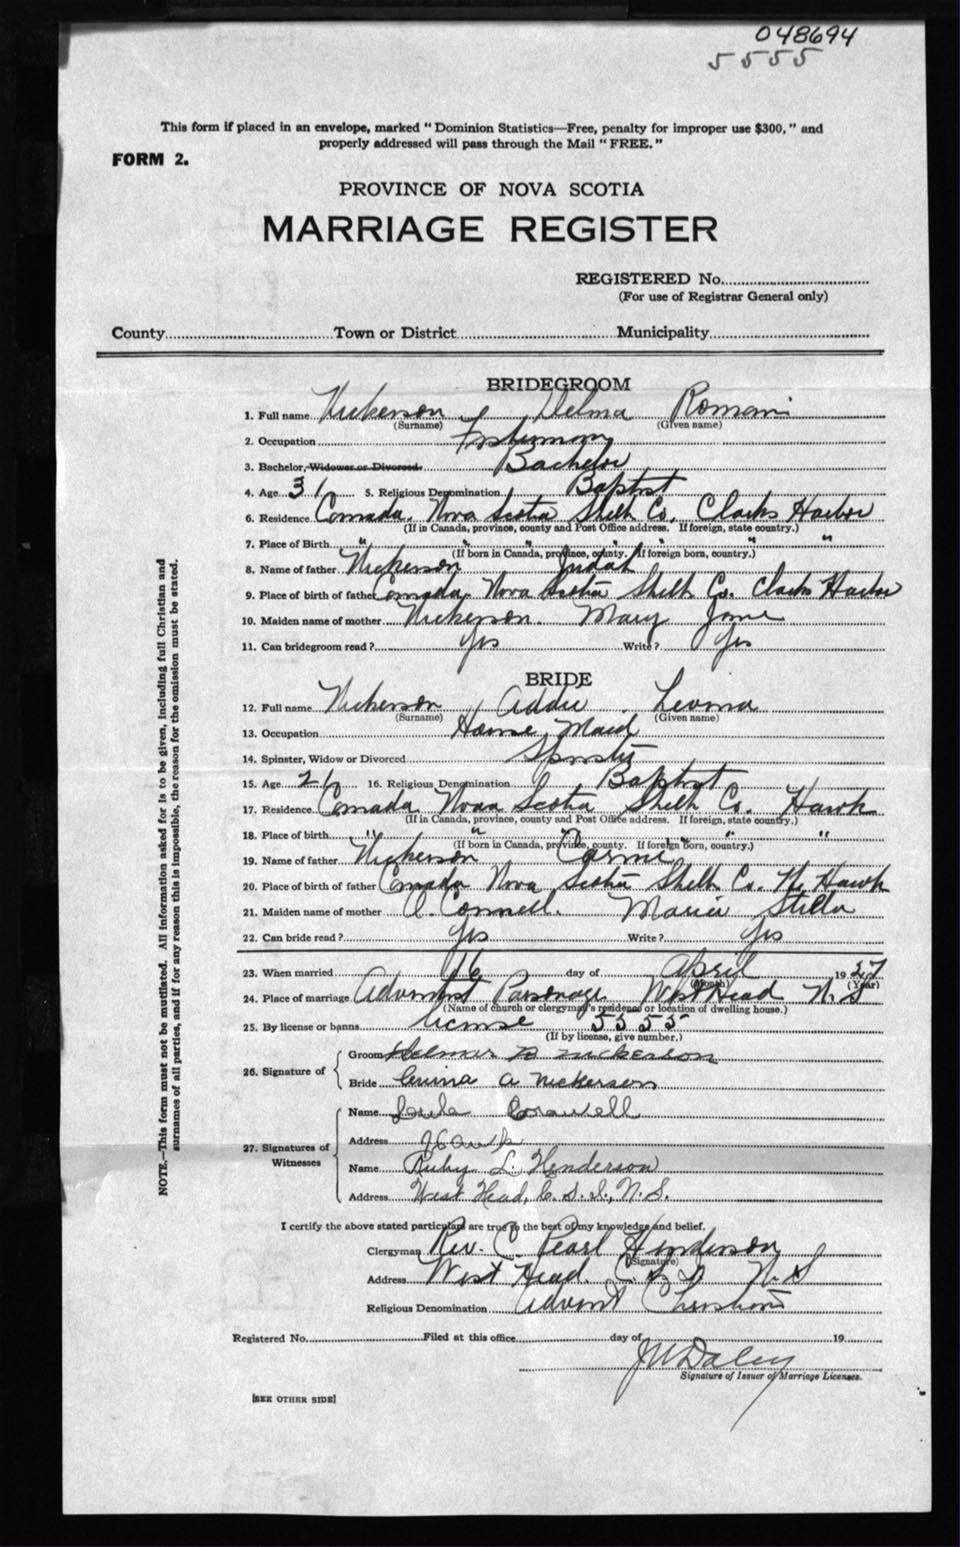 048694
5555
This form if placed in an envelope, marked "Dominion Statistics—Free, penalty for improper use $300," and
properly addressed will pass through the Mail "FREE."
FORM 2.
PROVINCE OF NOVA SCOTIA
MARRIAGE REGISTER
REGISTERED No.
(For use of Registrar General only)
County Town or District Municipality
BRIDEGROOM
1. Full name Nickerson, Delma Romain
(Surname) (Given name)
2. Occupation Fisherman
3. Bachelor, Widower or Divorced. Bachelor
4. Age 31 5. Religious Denomination Baptist
6. Residence Canada, Nova Scotia Shelb Co. Clarks Harbor
(If in Canada, province, county and Post Office address. If foreign, state country.)
7. Place of Birth " " " " " "
(If born in Canada, province, county. If foreign born, country.)
8. Name of father Nickerson Judah
9. Place of birth of father Canada, Nova Scotia Shelb Co. Clarks Harbor
10. Maiden name of mother Nickerson. Mary Jane
11. Can bridegroom read? Yes Write? Yes
BRIDE
12. Full name Nickerson Addie Levina
(Surname) (Given name)
13. Occupation House Maid
14. Spinster, Widow or Divorced Spinster
15. Age 21 16. Religious Denomination Baptist
17. Residence Canada Nova Scotia Shelb Co. Hawk
(If in Canada, province, county and Post Office address. If foreign, state country.)
18. Place of birth " " " " "
(If born in Canada, province, county. If foreign born, country.)
19. Name of father Nickerson
20. Place of birth of father Canada Nova Scotia Shelb Co. Hawk
21. Maiden name of mother O.Connell. Stella
22. Can bride read? Yes Write? Yes
23. When married 16 day of April 1927
(Month) (Year)
24. Place of marriage Adventist Parsonage West Head N.S
(Name of church or clergyman's residence or location of dwelling house.)
25. By license or banns license 5555
(If by license, give number.)
26. Signature of
Groom Nickerson
Bride A Nickerson
27. Signatures of Witnesses
Name
Address Hawk
Name Ruby L. Henderson
Address West Head, C. S. I., N.S.
I certify the above stated particulars are true to the best of my knowledge and belief.
Clergyman Rev. C. Pearl Henderson
(Signature)
Address West Head. C. S. I. N.S
Religious Denomination Advent Christian
Registered No. Filed at this office day of 19
J W Daley
Signature of Issuer of Marriage Licenses.
[SEE OTHER SIDE]
NOTE.—This form must not be mutilated. All information asked for is to be given, including full Christian and
surnames of all parties, and if for any reason this is impossible, the reason for the omission must be stated.